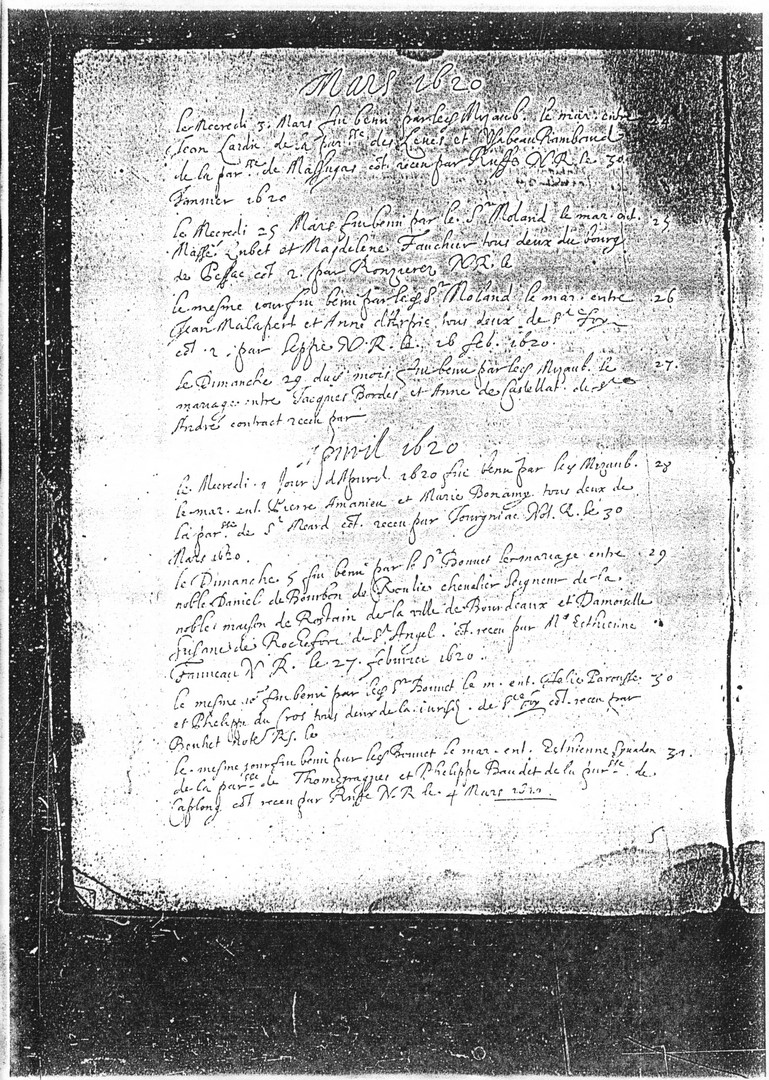 Mars 1620
le Mecredi 3. Mars fut beni par led Mizaub. le mar. entre 24
Jean Lardie de la par.sse des Leues et Ysabeau Rambaud
de la par.sse de Massugas cot. receu par Ruffe N.R. le 30
Janvier 1620
le Mecredi 25 Mars fut beni par le Sr Moland le mar. ent. 25
Massé et Magdelene Fauchier tous deux du bourg
de Pessac cot. r. par Ronzieres N.R. le
le mesme iour fut beni par led Sr Moland le mar. entre 26
Jean Malapert et Anne tous deux de Ste Foy
cot. r. par N.R. le 16 feb. 1620.
le Dimanche 29 dud mois fut beni par led Mizaub. le 27.
mariage entre Jacques Bordes et Anne de Castellat de St
André contract receu par
Apvril 1620
le Mecredi 1 Jour d'Apvril 1620 fut beni par led Mizaub. 28
le mar. ent. Pierre Amanieu et Marie Bonamy tous deux de
la par.sse de St Meard cot. receu par Jourgniac Not. R. le 30
Mars 1620.
le Dimanche 5 fut beni par le Sr Bonnet le mariage entre 29
noble Daniel de Bourbon de Roulie chevalier Seigneur de la
noble maison de Rostain de la ville de Bourdeaux et Damoiselle
Susane de Rochefort de St Angel. cot. receu par Me Esthienne
Janneau N.R. le 27. febvrier 1620.
le mesme io.r fut beni par led Sr Bonnet le m. ent. Helie 30
et Philippe du Cros tous deux de la iurisd. de Ste Foy cot. receu par
Bouhet Note R. le
le mesme jour fut beni par led Bonnet le mar. ent. Esthienne 31.
de la par.sse de Thomeyragues et Philippe Baudet de la par.sse de
Caplong cot. receu par Ruffe N.R. le 4 Mars
5